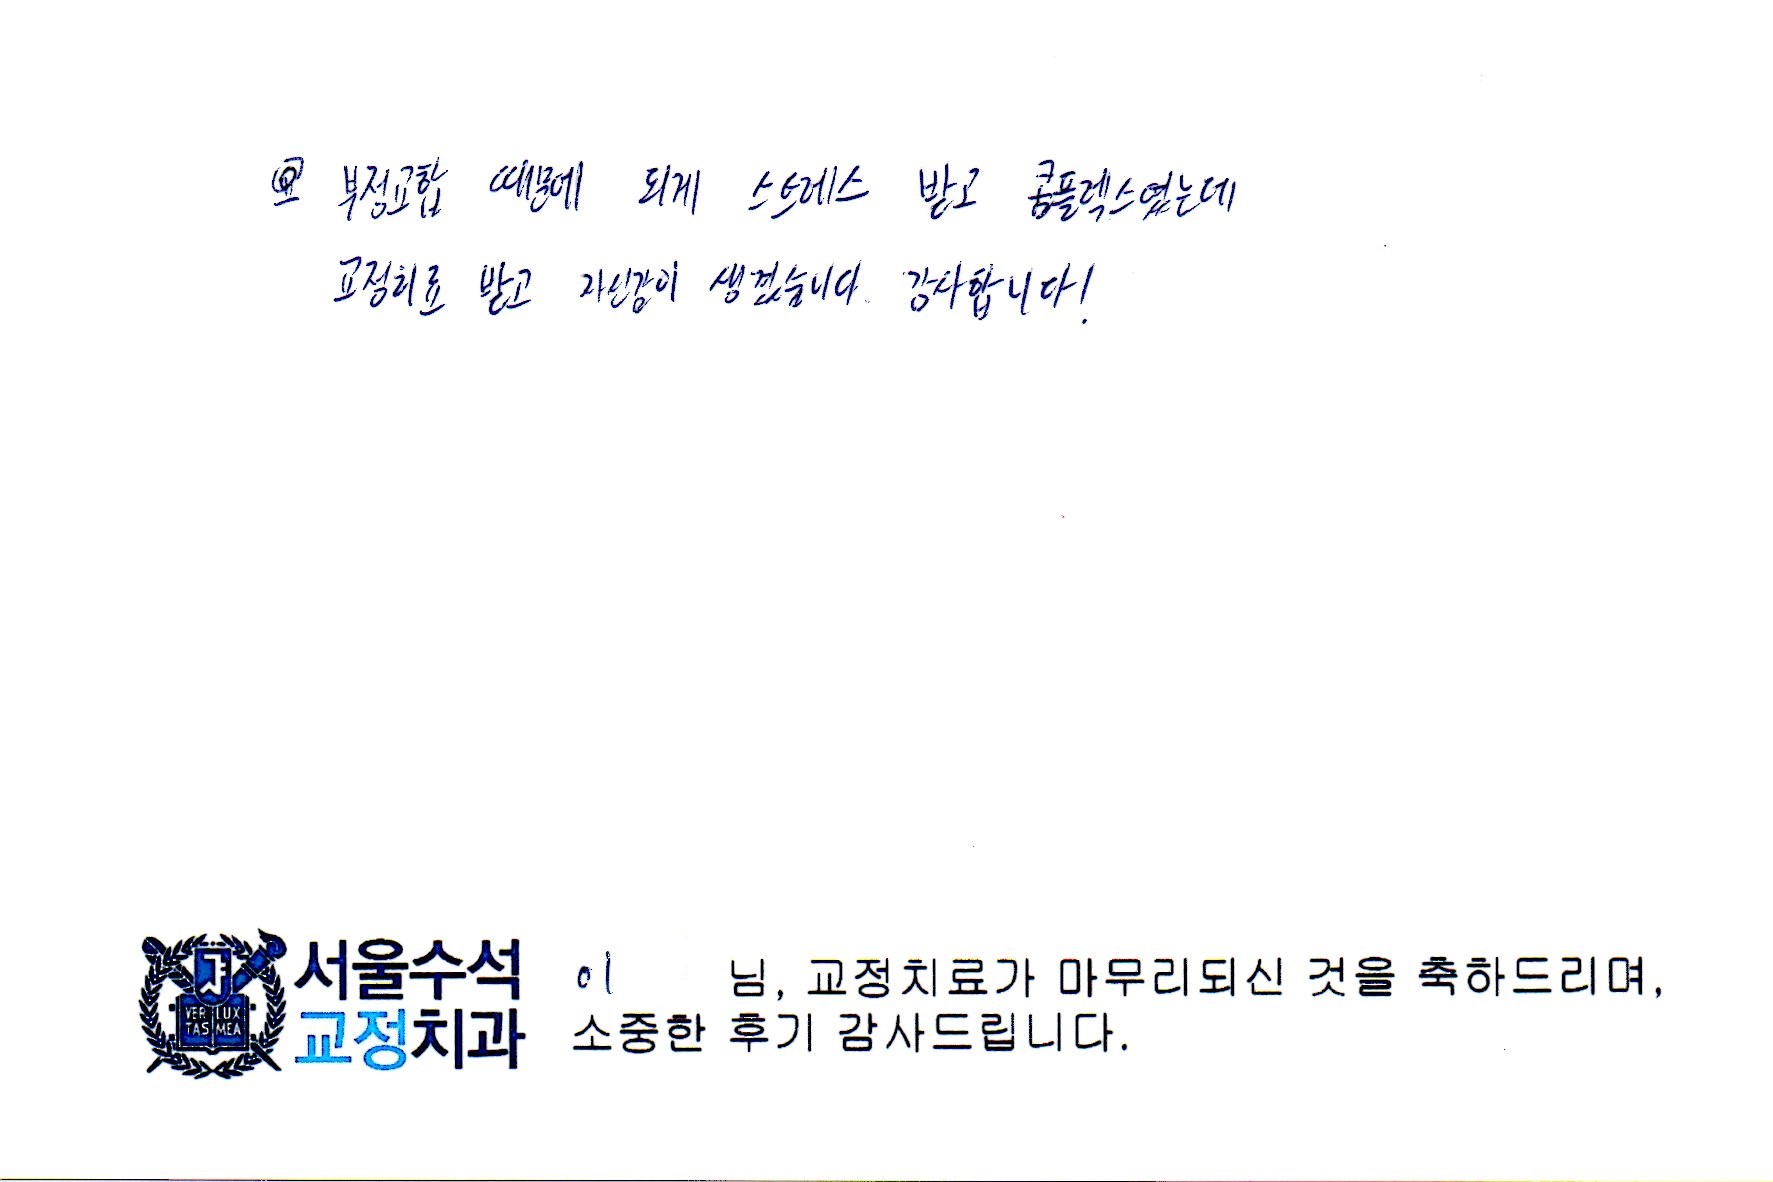 부정교합 때문에 되게 스트레스 받고 콤플렉스였는데
교정치료 받고 자신감이 생겼습니다. 감사합니다!
VERI LUX
TAS MEA
서울수석
교정치과
이 님, 교정치료가 마무리되신 것을 축하드리며,
소중한 후기 감사드립니다.